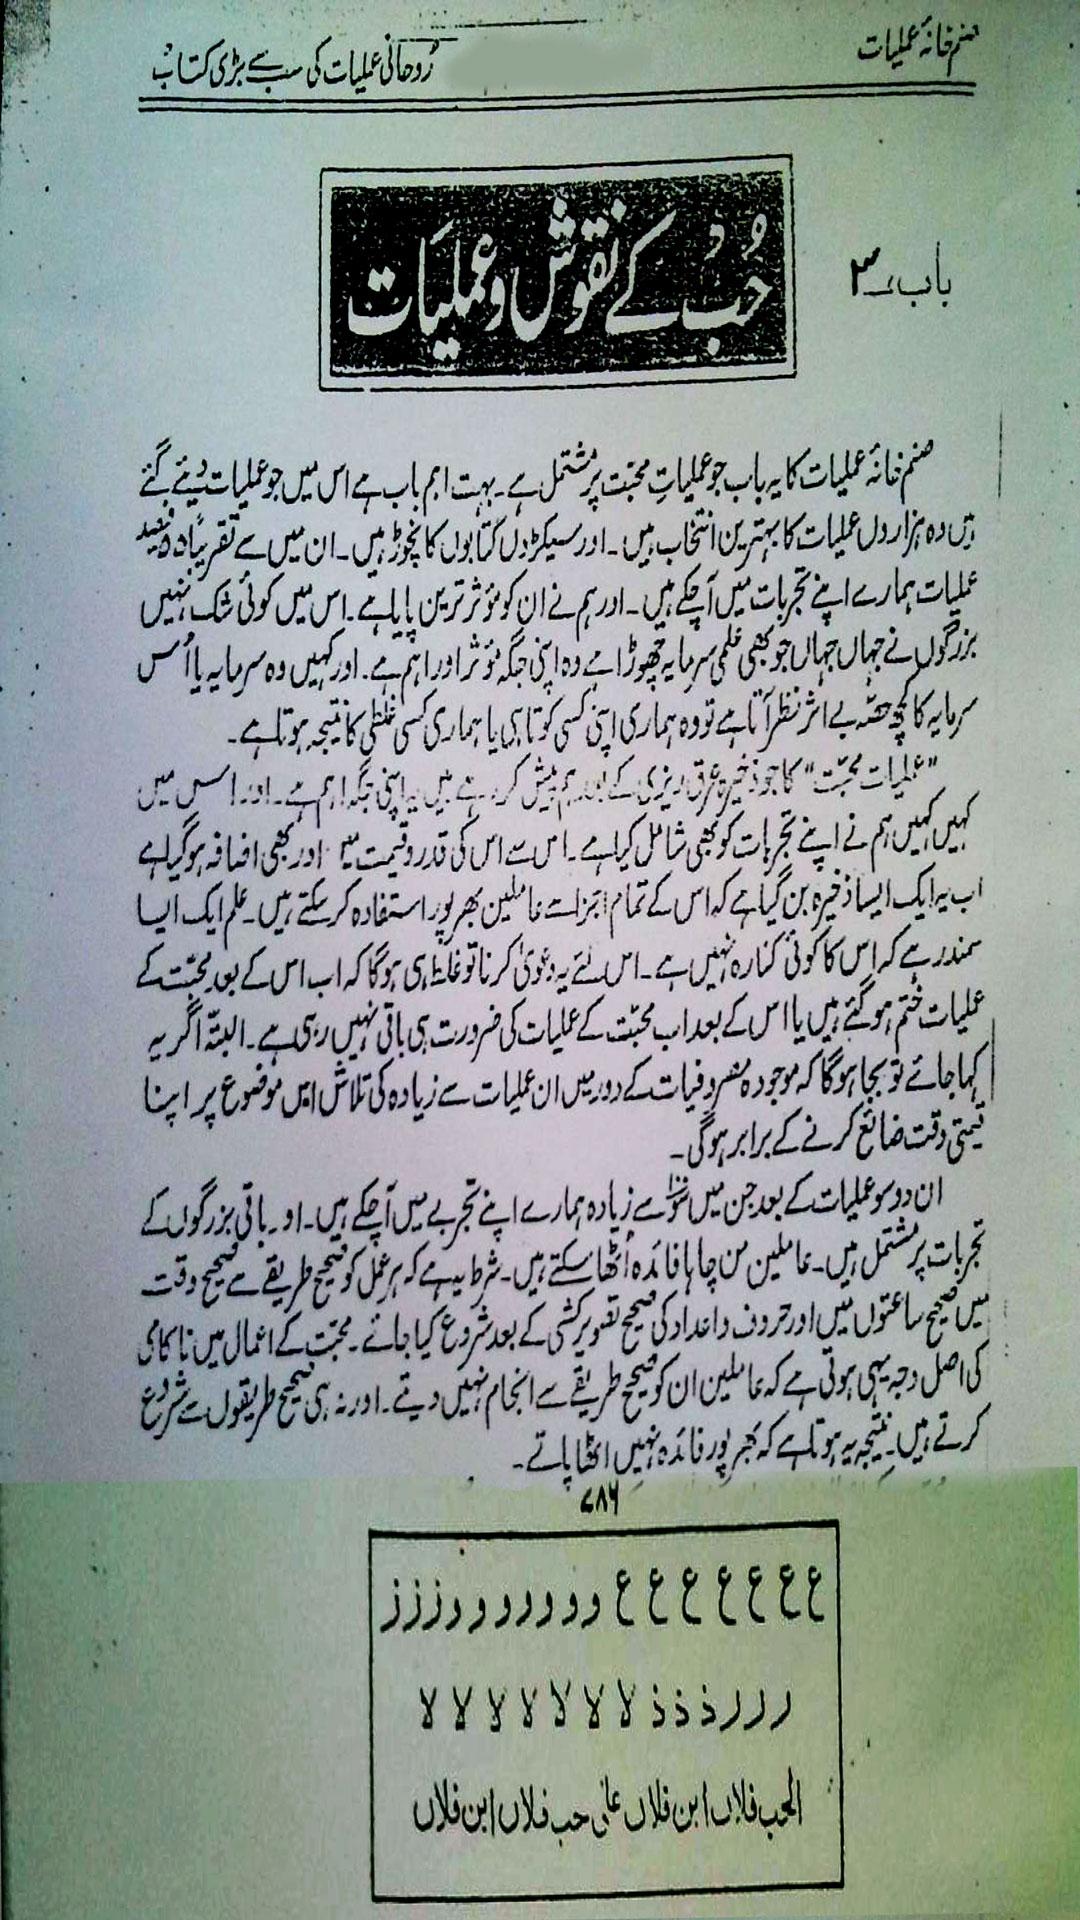 صنم خانۂ عملیات
رُوحانی عملیات کی سب سے بڑی کتاب
باب ۳
حُبّ کے نقوش و عملیَات
صنم خانۂ عملیات کا یہ باب جو عملیاتِ محبّت پر مشتمل ہے۔ بہت اہم باب ہے اس میں جو عملیات دیئے گئے
ہیں وہ ہزاروں عملیات کا بہترین انتخاب ہیں۔ اور سیکڑوں کتابوں کا نچوڑ ہیں۔ ان میں سے تقریبًا فیصد
عملیات ہمارے اپنے تجربات میں آچکے ہیں۔ اور ہم نے ان کو مؤثر ترین پایا ہے۔ اس میں کوئی شک نہیں
بزرگوں نے جہاں جہاں جو بھی علمی سرمایہ چھوڑا ہے وہ اپنی جگہ مؤثر اور اہم ہے۔ اور کہیں وہ سرمایہ یا اُس
سرمایہ کا کچھ حصّہ بے اثر نظر آتا ہے تو وہ ہماری اپنی کسی کوتاہی یا ہماری کسی غلطی کا نتیجہ ہوتا ہے۔
"عملیات محبّت" کا جو ذخیرہ عرق ریزی کے بعد ہم پیش کر رہے ہیں یہ اپنی جگہ اہم ہے۔ اور اس میں
کہیں کہیں ہم نے اپنے تجربات کو بھی شامل کیا ہے۔ اس سے اس کی قدر و قیمت میں اور بھی اضافہ ہوگیا ہے
اب یہ ایک ایسا ذخیرہ بن گیا ہے کہ اس کے تمام اجزا سے عاملین بھرپور استفادہ کرسکتے ہیں۔ علم ایک ایسا
سمندر ہے کہ اس کا کوئی کنارہ نہیں ہے۔ اس لئے یہ دعویٰ کرنا تو غلط ہی ہوگا کہ اب اس کے بعد محبّت کے
عملیات ختم ہوگئے ہیں یا اس کے بعد اب محبّت کے عملیات کی ضرورت ہی باقی نہیں رہی ہے۔ البتّہ اگر یہ
کہا جائے تو بجا ہوگا کہ موجودہ مصروفیات کے دور میں ان عملیات سے زیادہ کی تلاش اس موضوع پر اپنا
قیمتی وقت ضائع کرنے کے برابر ہوگی۔
ان دو سو عملیات کے بعد جن میں سَو سے زیادہ ہمارے اپنے تجربے میں آچکے ہیں۔ اور باقی بزرگوں کے
تجربات پر مشتمل ہیں۔ عاملین من چاہا فائدہ اُٹھا سکتے ہیں۔ شرط یہ ہے کہ ہر عمل کو صحیح طریقے سے صحیح وقت
میں صحیح ساعتوں میں اور حروف و اعداد کی صحیح تصویر کشی کے بعد شروع کیا جائے۔ محبّت کے اعمال میں ناکامی
کی اصل وجہ یہی ہوتی ہے کہ عاملین ان کو صحیح طریقے سے انجام نہیں دیتے۔ اور نہ ہی صحیح طریقوں سے شروع
کرتے ہیں۔ نتیجہ یہ ہوتا ہے کہ بھرپور فائدہ نہیں اٹھا پاتے۔
۷۸۶
ع ع ع ع ع ع ع و و و ر و و و ر ز ز ز
ر ر ر ذ ذ ذ لا لا لا لا لا لا لا
الحب فلاں ابن فلاں علی حب فلاں ابن فلاں